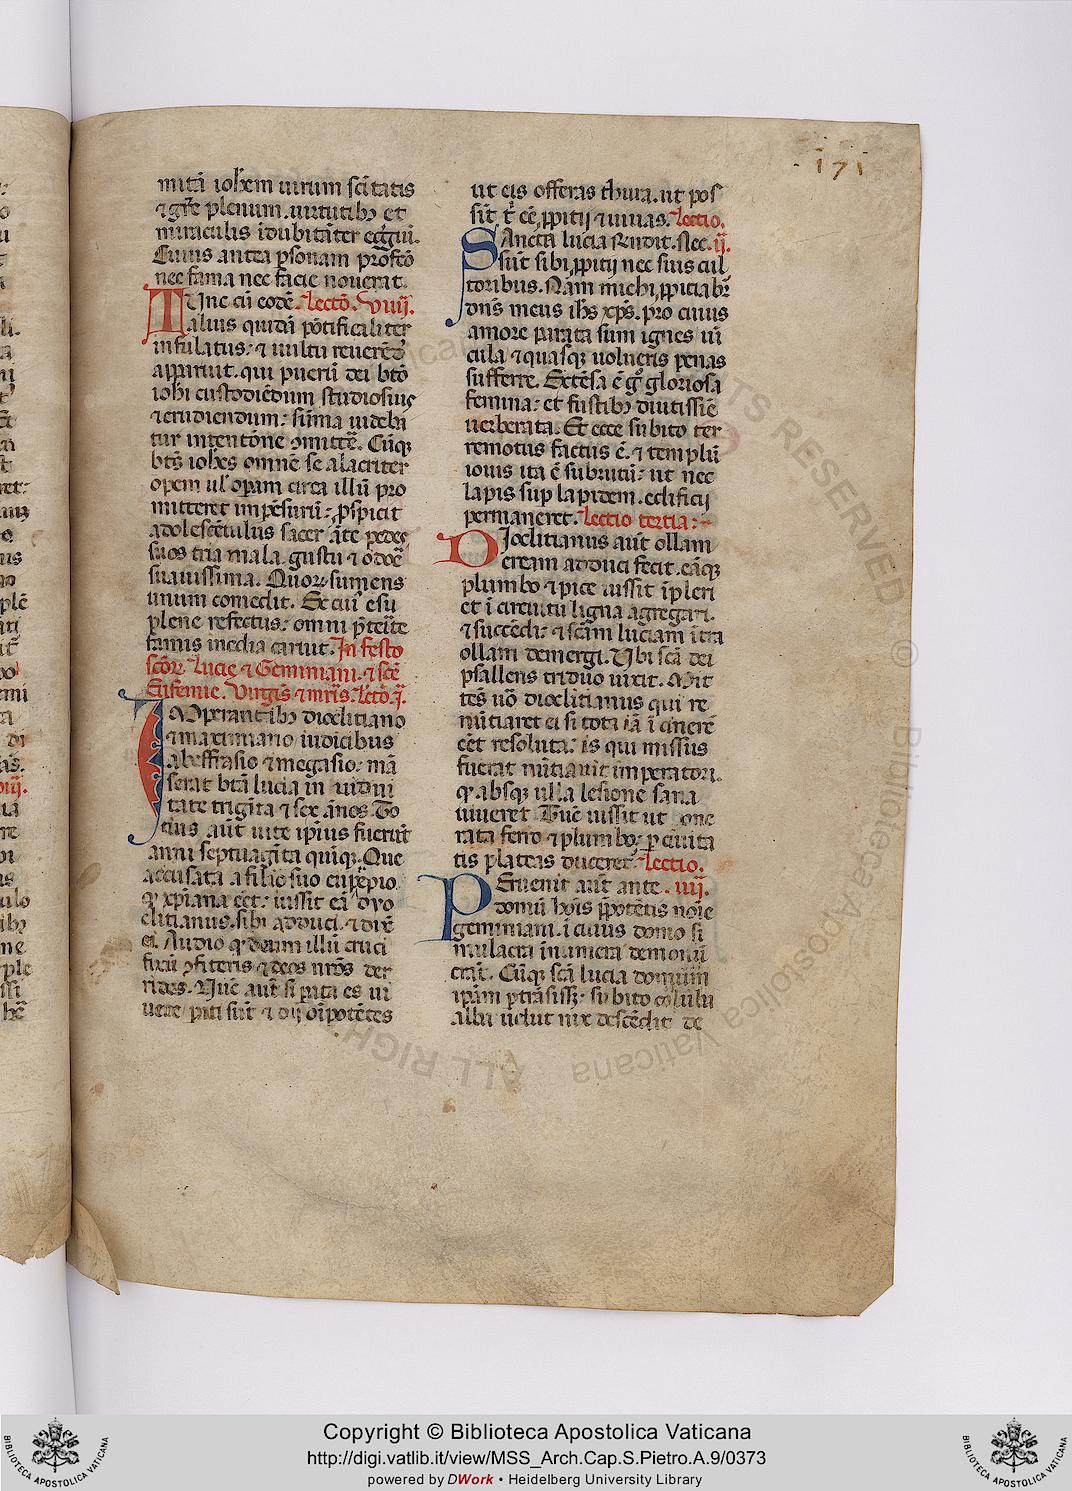 171
mitā ioh̄em uirum sc̄itatis
⁊ gr̄e plenum. uirtutibꝫ et
miraculis īdubitāter
Cuius antea ꝑsonam
nec fama nec facie nouerat.
TVnc cū eodē. Lectō. viiij.
aliuis quidā pōtificaliter
infulatus: ⁊ uultu reuerēd
apparuit. qui puerū dei btō
ioh̄i custodiēdum studiosius
⁊ erudiendum: sūma uideba
tur intentōne ꝯmittē. Cūqꝫ
btūs ioh̄es omnē se alacriter
opem ul̄ oꝑam circa illū pro
mitteret impēsurū: ꝓspicit
adolescētulus sacer āte pedes
suos tria mala. gustu ⁊ odoē
suauissima. Quoꝝ sumens
unum comedit. Ex cuiꝰ esu
plene refectus: omni p̄teīte
famis inedia caruit. In festo
sc̄oꝝ Lucie ⁊ Geminiani. ⁊ sc̄e
Eufemie. Virginis ⁊ mr̄is. Lectō. j.
IMperantibꝫ dioclitiano
⁊ maximiano iudicibus
abeffrasio ⁊ megasio: mā
serat btā lucia in uidui
tate trigīta ⁊ sex ānos. To
cius aūt uite ipīus fuerūt
anni septuagīta quīqꝫ. Que
accusata a filio suo euprepio
qꝫ xp̄iana eēt: iussit eā dyo
clitianus. sibi adduci. ⁊ dixē
ei. Audio qꝫ deum illū cruci
fixū ꝯfiteris ⁊ deos nr̄os der
rides. Nūc aūt si parata es ui
uere piti sūt ⁊ dij oīpotētes
ut eis offeras thura. ut pos
sīt t̄ eē ꝓpitij ⁊ uiuas. Lectio.
SAncta lucia rn̄dit. Nec. ij.
sūt sibi ꝓpitij nec suis cul
toribus. Nam michi ꝓpitiabr̄
dn̄s meus ih̄s xp̄s. pro cuius
amore parata sum ignes uī
cula ⁊ quasqꝫ uolueris penas
sufferre. Extēsa ē gͦ gloriosa
femina: et fustibꝫ diutissīe
uerberata. Et ecce subito ter
remotus factus ē. ⁊ templū
iouis ita ē subrutū: ut nec
lapis suꝑ lapidem. edificij
permaneret. Lectio tertia:
DIoclitianus aūt ollam
eream adduci fecit. eāqꝫ
plumbo ⁊ pice iussit īpleri
et ī circuitu ligna agregari.
⁊ succēdi: ⁊ sc̄am luciam īfra
ollam demergi. Vbi sc̄a dei
psallens triduo uixit. Mit
tēs uō dioclitianus qui re
nūtiaret ei si tota iā ī cinerē
eēt resoluta: is qui missus
fuerat nūtiauit imperatori.
qꝫ absqꝫ ulla lesione sana
uiueret. Tūc iussit ut one
rata ferro ⁊ plumbo: ꝑ ciuita
tis plateas duceret. Lectio.
PEruenit aūt ante. iiij.
domū hoīs p̄potētis noīe
geminiani. ī cuius domo si
mulacra inumera demonū
erāt. Cūqꝫ sc̄a lucia domum
ipām ꝑtrāsissꝫ: subito colūba
alba uelut nix descēdit de
Copyright © Biblioteca Apostolica Vaticana
http://digi.vatlib.it/view/MSS_Arch.Cap.S.Pietro.A.9/0373
powered by DWork • Heidelberg University Library